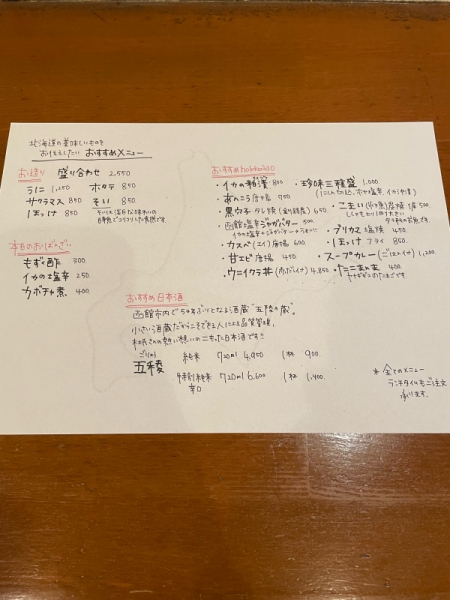 北海道の美味しいものを
お伝えしたい おすすめメニュー
お造り 盛り合わせ 2,550
うに 1,250 ホタテ 850
サクラマス 850 そい 850
ほっけ 850
本日のおばんざい
もずく酢 300
イカの塩辛 250
カボチャ煮 400
おすすめhokkaido
・イカの粕漬 800
・あんこう唐揚 950
・黒カレイ タレ焼 650
・函館塩辛ジャガバター 500
・カスベ(エイ)唐揚 600
・甘エビ唐揚 450
・ウニイクラ丼 4,850
・珍味三種盛 1,000
・こまい 一夜干 500
・ブリカマ 塩焼 450
・ほっけ フライ 850
・スープカレー(ごはんつき) 1,200
400
おすすめ日本酒
函館市内で54年ぶりとなる酒蔵"五稜の蔵"。
小さい酒蔵だからこそできる人による品質管理。
杜氏さんの熱い想いのこもった日本酒です!!
ごりょう 純米 720ml 4,950 1杯 900
五稜
特別純米 720ml 6,600 1杯 1,400
辛口
* 全てのメニュー
ランチタイムもご注文
承ります。